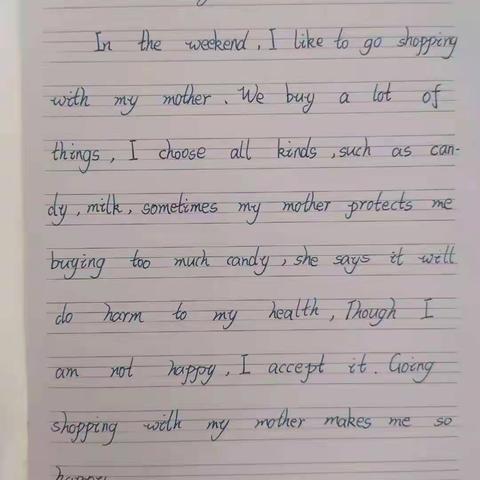 In the weekend, I like to go shopping
with my mother. We buy a lot of
things, I choose all kinds, such as can-
dy, milk, sometimes my mother protects me
buying too much candy, she says it will
do harm to my health, Though I
am not happy, I accept it. Going
shopping with my mother makes me so